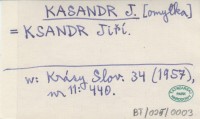 KASANDR J. [omylka]
= KSANDR JIŘÍ.
w: Krásy Slov. 34 (1957),
nr 11: 440.
BT/027/0003